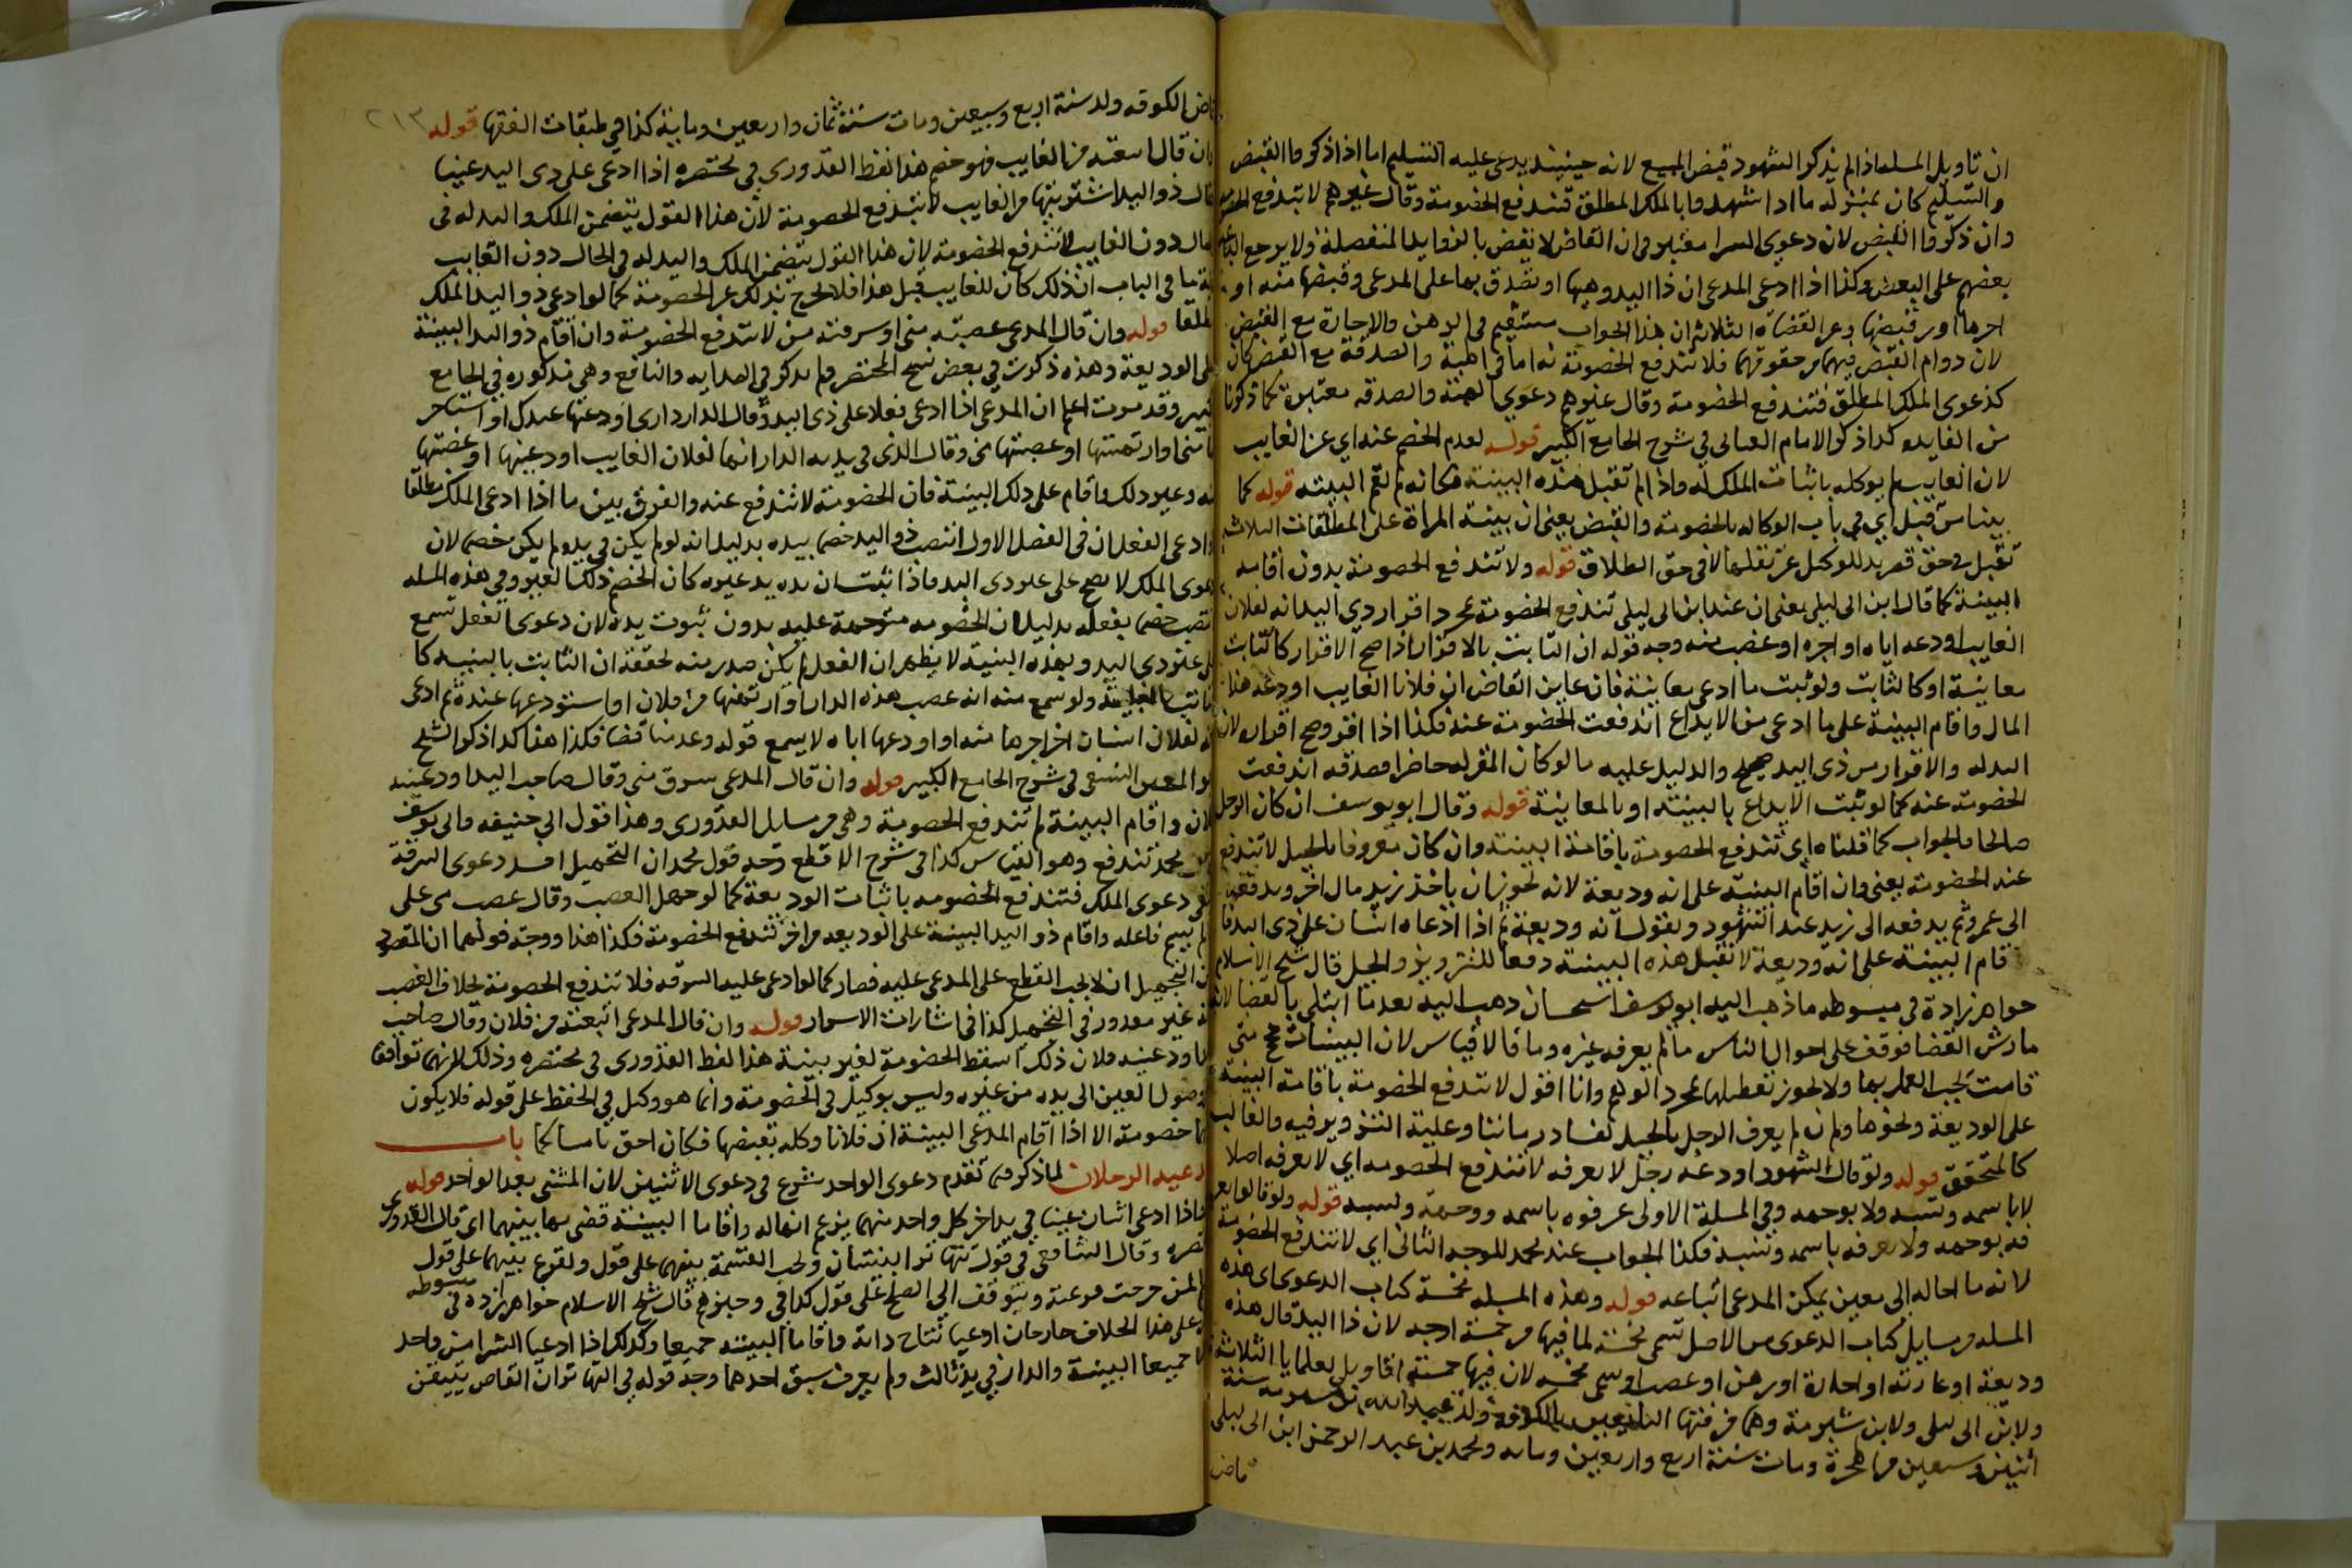 ان تاويل المسلة اذا لم يذكر الشهود قبض المبيع لانه حينئذ يدعى عليه التسليم اما اذا ذكروا القبض
والتسليم كان بمنزلة ما اذا شهدوا بالملك المطلق فتندفع الخصومة وقال غيرهم لا تندفع
وان ذكروا القبض لان دعوى الشرا معتبر فى ان القاضى لا يقضى بالزوايد المنفصلة ولا يرجع الباعة
بعضهم على البعض وكذا اذا ادعى المدعى ان ذا اليد وهبها او تصدق بها على المدعى وقبضها منه او
اجرها او رقبضها وعن القضاة الثلاثة ان هذا الجواب مستقيم فى الرهن والاجارة مع القبض
لان دوام القبض فيهما من حقوقهما فلا تندفع الخصومة فاما فى الهبة والصدقة مع القبض كان
كدعوى الملك المطلق فتندفع الخصومة وقال غيرهم دعوى الهبة والصدقه معتبرة كما ذكرنا
من الفايدة كذا ذكر الامام العتابى فى شرح الجامع الكبير قوله لعدم الخصم عنه اى عن الغايب
لان الغايب لم يوكله باثبات الملك له واذا لم تقبل هذه البينة فكانه لم تقم البينه قوله كما
بينا من قبل اى فى باب الوكالة بالخصومة والقبض يعنى ان بينة المراة على المطلقات الثلاث
تقبل فى حق قصر يد الوكيل عن نقلها لا فى حق الطلاق قوله ولا تندفع الخصومة بدون اقامة
البينة كما قال ابن ابى ليلى يعنى ان عند ابن ابى ليلى تندفع الخصومة بمجرد اقرار ذى اليد انه لفلان
الغايب اودعه اياه او اجره او غصب منه وجه قوله ان الثابت بالاقرار اذا صح الاقرار كالثابت
معاينة او كالثابت ولو ثبت ما ادعى معاينة فان عاين القاضى ان فلانا الغايب اودعه هذا
المال واقام البينة على ما ادعى من الايداع اندفعت الخصومة عنه فكذا اذا اقر وصح اقراره لان
اليد له والاقرار من ذى اليد صحيح والدليل عليه ما لو كان المقر له حاضرا فصدقه اندفعت
الخصومة عنه كما لو ثبت الايداع بالبينة او بالمعاينة قوله وقال ابو يوسف ان كان الرجل
صالحا فالجواب كما قلناه اى تندفع الخصومة باقامة البينة وان كان معروفا بالحيل لا تندفع
عنه الخصومة يعنى وان اقام البينة على انه وديعة لانه يجوز ان ياخذ زيد مال اخر ويدفعه
الى عمرو ثم يدفعه الى زيد عند الشهود ويقول انه وديعة ثم اذا ادعاه انسان على ذى اليد
قام البينة على انه وديعة لا تقبل هذه البينة دفعا للتزوير والحيل قال شيخ الاسلام
خواهر زاده فى مبسوطه ما ذهب اليه ابو يوسف استحسان ذهب اليه بعد ما ابتلى بالقضا لانه
مارس القضا فوقف على احوال الناس ما لم يعرفه غيره وما قالا قياس لان البينات حجج متى
قامت يجب العمل بها ولا يجوز تعطيلها بمجرد الوهم وانا اقول لا تندفع الخصومة باقامة البينة
على الوديعة ونحوها وان لم يعرف الرجل بالحيل لفساد زماننا وغلبة التزوير فيه والغالب
كالمتحقق قوله ولو قال الشهود اودعه رجل لا نعرفه لا تندفع الخصومه اى لا نعرفه اصلا
لا باسمه ونسبه ولا بوجهه وفى المسلة الاولى عرفوه باسمه ووجهه ونسبه قوله ولو قالوا نعر
فه بوجهه ولا نعرفه باسمه ونسبه فكذا الجواب عند محمد للوجه الثانى اى لا تندفع الخصومة
لانه ما احاله الى معين يمكن المدعى اتباعه قوله وهذه المسله مخمسة كتاب الدعوى اى هذه
المسله من مسايل كتاب الدعوى من الاصل تسمى مخمسة لما فيها من خمسة اوجه لان ذا اليد قال هذه
وديعة او عارية او اجارة او رهن او غصب او سمى مخمسه لان فيها خمسة اقاويل لعلماينا الثلاثة
ولابن ابى ليلى ولابن شبرمة وهما من فقها التابعين بالكوفة ولد عبد الله بن شبرمة سنة
اثنين وسبعين من الهجرة ومات سنة اربع واربعين ومايه ومحمد بن عبد الرحمن ابن ابى ليلى
قاضى
قاضى الكوفه ولد سنة اربع وسبعين ومات سنة ثمان واربعين وماية كذا فى طبقات الفقها قوله ٢١٣
وان قال ابتعته من الغايب فهو خصم هذا لفظ القدورى فى مختصره اذا ادعى على ذى اليد عينا
فقال ذو اليد اشتريتها من الغايب لا تندفع الخصومة لان هذا القول يتضمن الملك واليد له فى
الحال دون الغايب لا تندفع الخصومة لان هذا القول يتضمن الملك واليد له فى الحال دون الغايب
ية ما فى الباب ان ذلك كان للغايب قبل هذا فلا يخرج بذلك عن الخصومة كما لو ادعى ذو اليد الملك
مطلقا قوله وان قال المدعى غصبته منى او سرقته منى لا تندفع الخصومة وان اقام ذو اليد البينة
على الوديعة وهذه ذكرت فى بعض نسخ المختصر ولم يذكر فى الهدايه والنافع وهى مذكوره فى الجامع
كبير وقد مرت اعلم ان المدعى اذا ادعى فعلا على ذى اليد وقال الدار دارى اودعتها عندك او استاجر
تها منى او ارتهنتها او غصبتها منى وقال الذى فى يديه الدار انها لفلان الغايب اودعنيها او غصبتها
منه وغير ذلك واقام على ذلك البينة فان الخصومة لا تندفع عنه والفرق بين ما اذا ادعى الملك مطلقا
وادعى الفعل ان فى الفصل الاول انتصب ذو اليد خصما بيده بدليل انه لو لم يكن فى يده لم يكن خصما لان
دعوى الملك لا يصح على غير ذى اليد فاذا اثبت ان يده يد غيره كان الخصم ذلك الغير وفى هذه المسله
انتصب خصما بفعله بدليل ان الخصومه متوجهة عليه بدون ثبوت يده لان دعوى الفعل تسمع
على غير ذى اليد وبهذه البينة لا يظهر ان الفعل لم يكن صدر منه تحققه ان الثابت بالبينه كا
لثابت بالمعاينة ولو سمع منه انه غصب هذه الدار او ارتهنها من فلان او استودعها عنده ثم ادعى
انه لفلان انسان اخر اجرها منه او اودعها اياه لا يسمع قوله وعد مناقضا فكذا هذا كذا ذكر الشيخ
ابو المعين النسفى فى شرح الجامع الكبير قوله وان قال المدعى سرق منى وقال صاحب اليد اودعنيه
فلان واقام البينة لم تندفع الخصومة وهى من مسايل القدورى وهذا قول ابى حنيفه وابى يوسف
وعن محمد تندفع وهو القياس كذا فى شرح الاقطع وجه قول محمد ان التجهيل افسد دعوى السرقة
فبقى دعوى الملك فتندفع الخصومه باثبات الوديعة كما لو جهل الغصب وقال غصب منى على
ما لم يسم فاعله واقام ذو اليد البينة على الوديعه من اخر تندفع الخصومة فكذا هذا ووجه قولهما ان المقصود
من التجهيل ان لا يجب القطع على المدعى عليه فصار كما لو ادعى عليه السرقه فلا تندفع الخصومة بخلاف الغصب
فانه غير معذور فى التجهيل كذا فى اشارات الاسرار قوله وان قال المدعى ابتعته من فلان وقال صاحب
اليد اودعنيه فلان ذلك اسقط الخصومة بغير بينة هذا لفظ القدورى فى مختصره وذلك لانهما توافقا
وصول العين الى يده من غيره وليس بوكيل فى الخصومة وانما هو وكيل فى الحفظ على قوله فلا يكون
خصومة الا اذا اقام المدعى البينة ان فلانا وكله بقبضها فكان احق بامساكها باب
يدعيه الرجلان لما ذكر من تقدم دعوى الواحد شرع فى دعوى الاثنين لان المثنى بعد الواحد قوله
واذا ادعى اثنان عينا فى يد اخر كل واحد منهما يزعم انها له واقاما البينة قضى بها بينهما اى قال القدورى
مختصره وقال الشافعى فى قول تهاترا البينتان ويجب القسمة بينهما على قول ويقرع بينهما على قول
لمن خرجت قرعته ويتوقف الى الصلح على قول كذا فى وجيزهم قال شيخ الاسلام خواهر زاده فى مبسوطه
وعلى هذا الخلاف خارجان ادعيا نتاج دابة واقاما البينه جميعا وكذلك اذا ادعيا الشرا من واحد
جميعا البينة والدار فى يد ثالث ولم يعرف سبق احدهما وجه قوله فى التهاتر ان القاضى يتيقن